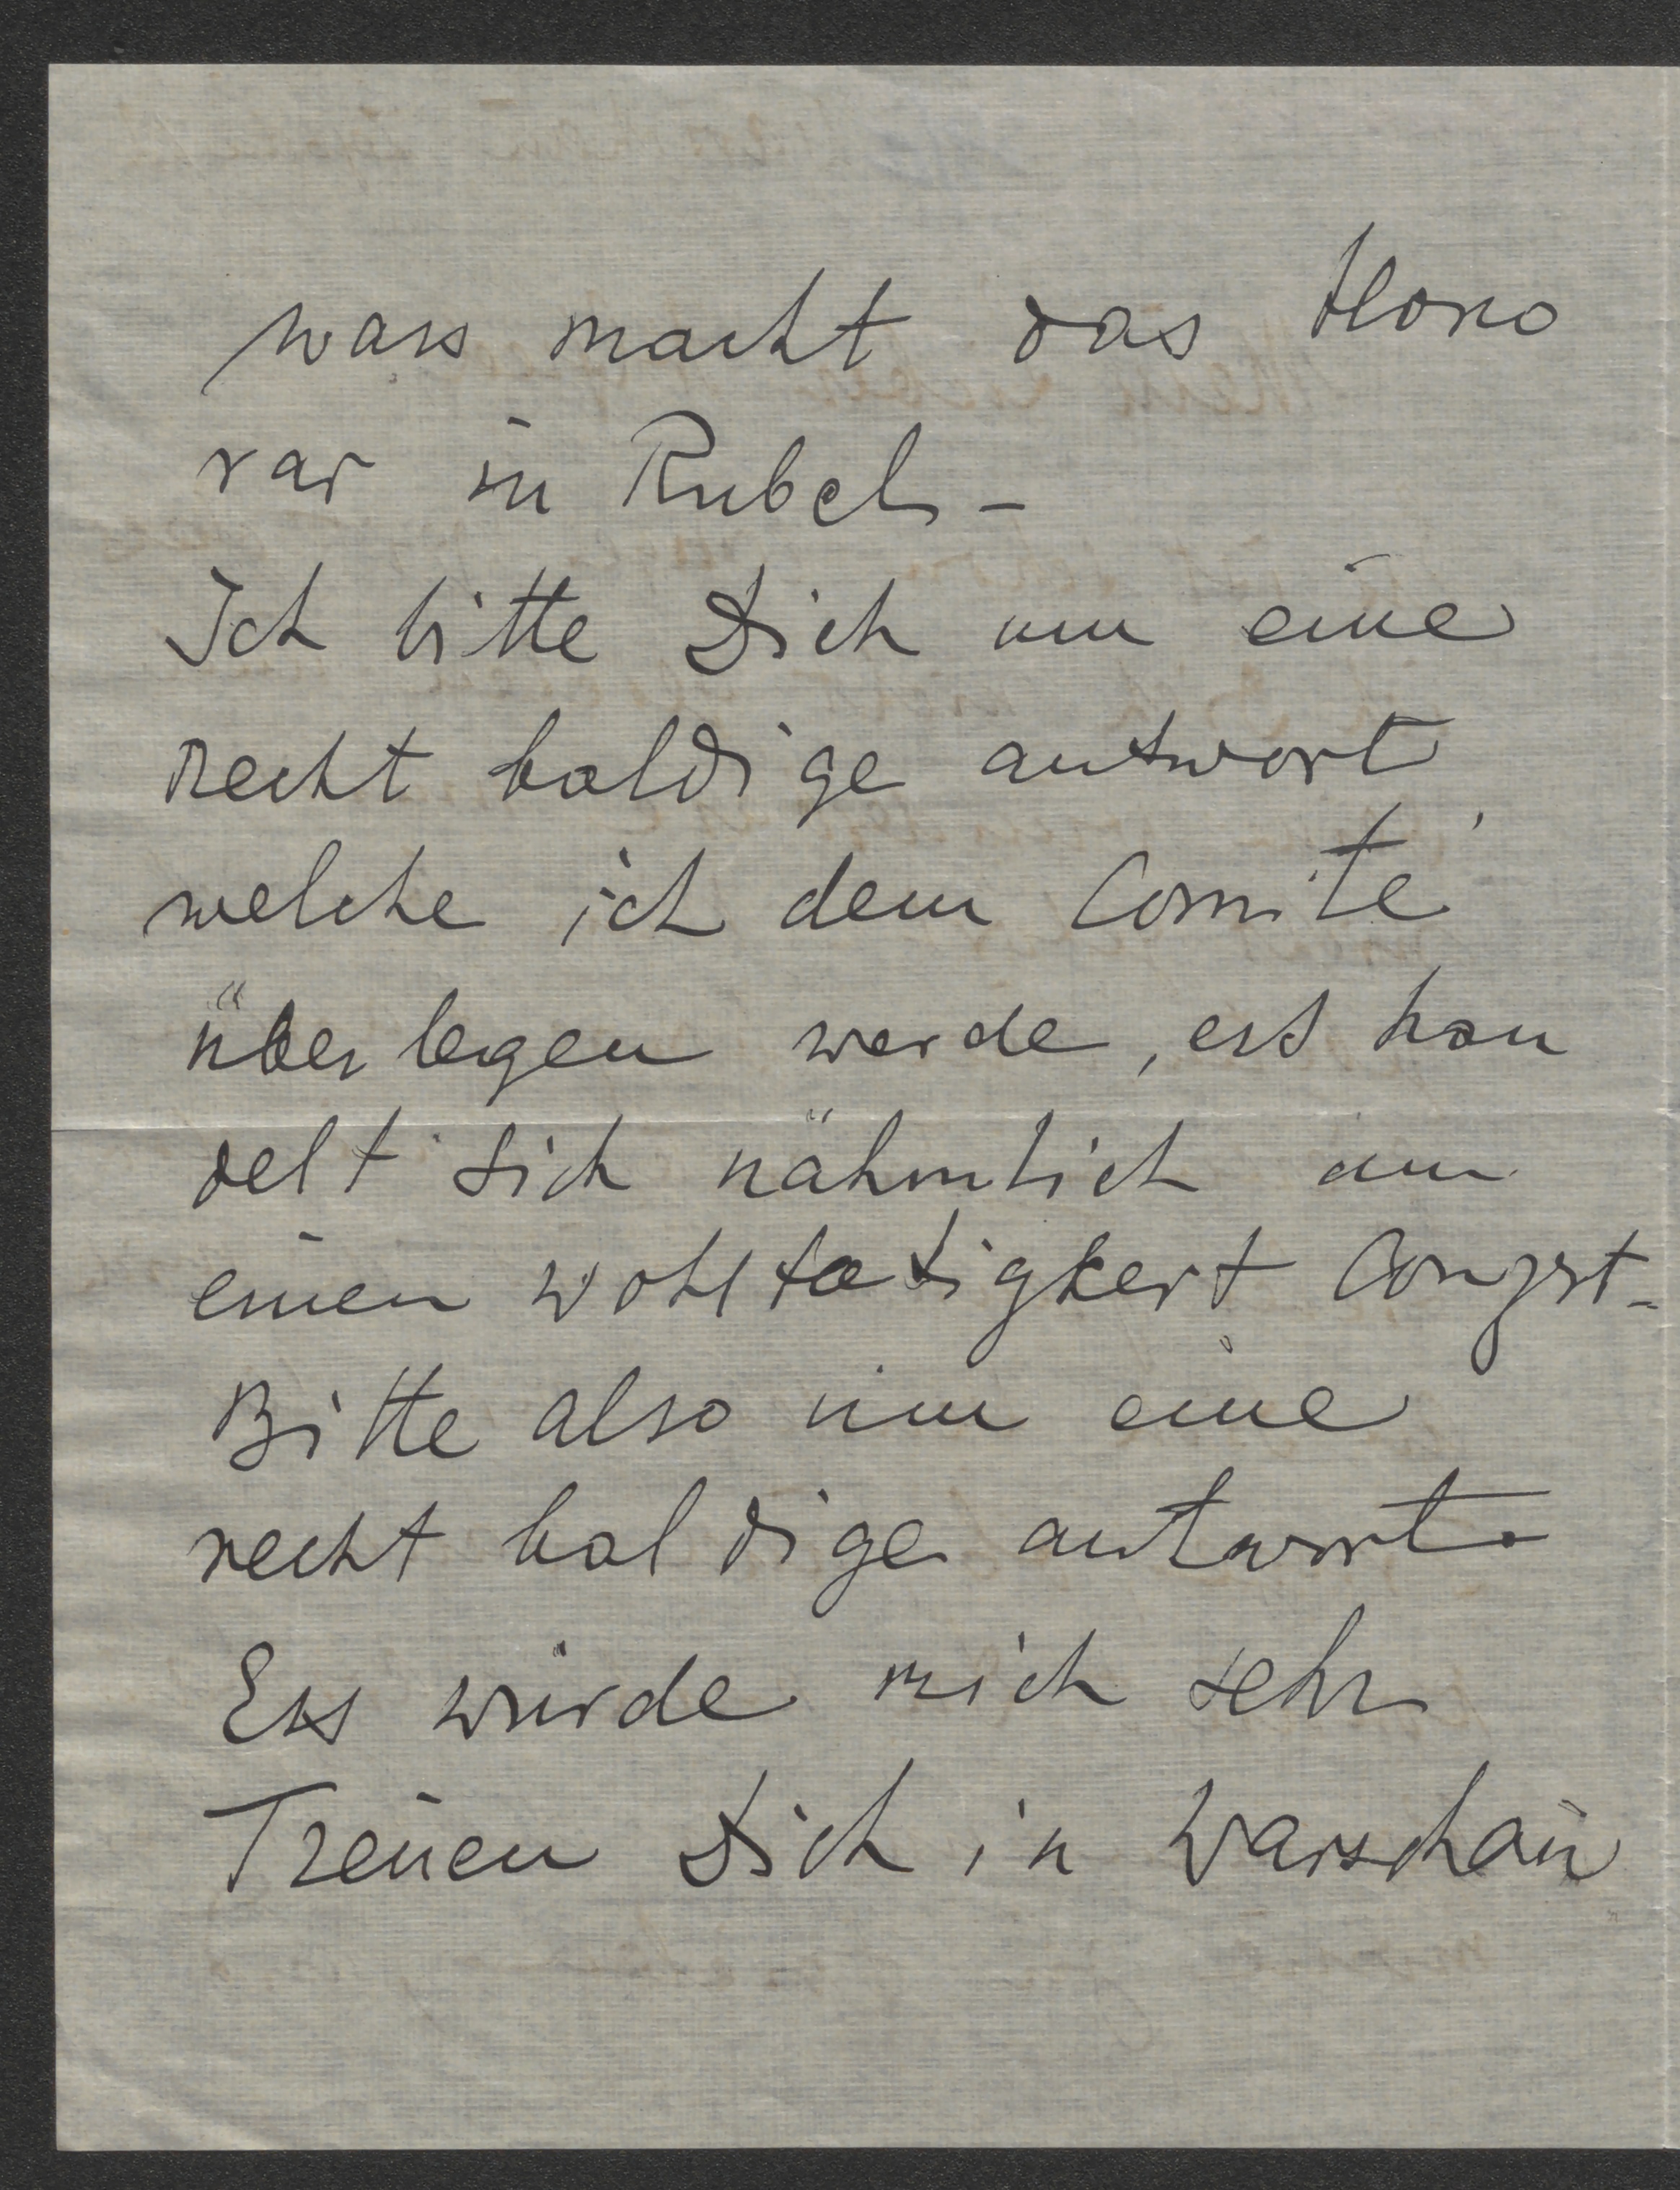 wass macht das Hono
rar in Rubel –
Ich bitte Dich um eine
recht baldige antwort,
welche ich dem Comité
überlegen werde, ess han
delt sich nähmlich um
einen wohltatigkeit Conzrt –
Bitte also um eine
recht baldige antwort.
Ess würde mich sehr
Freuen Dich in Warschau